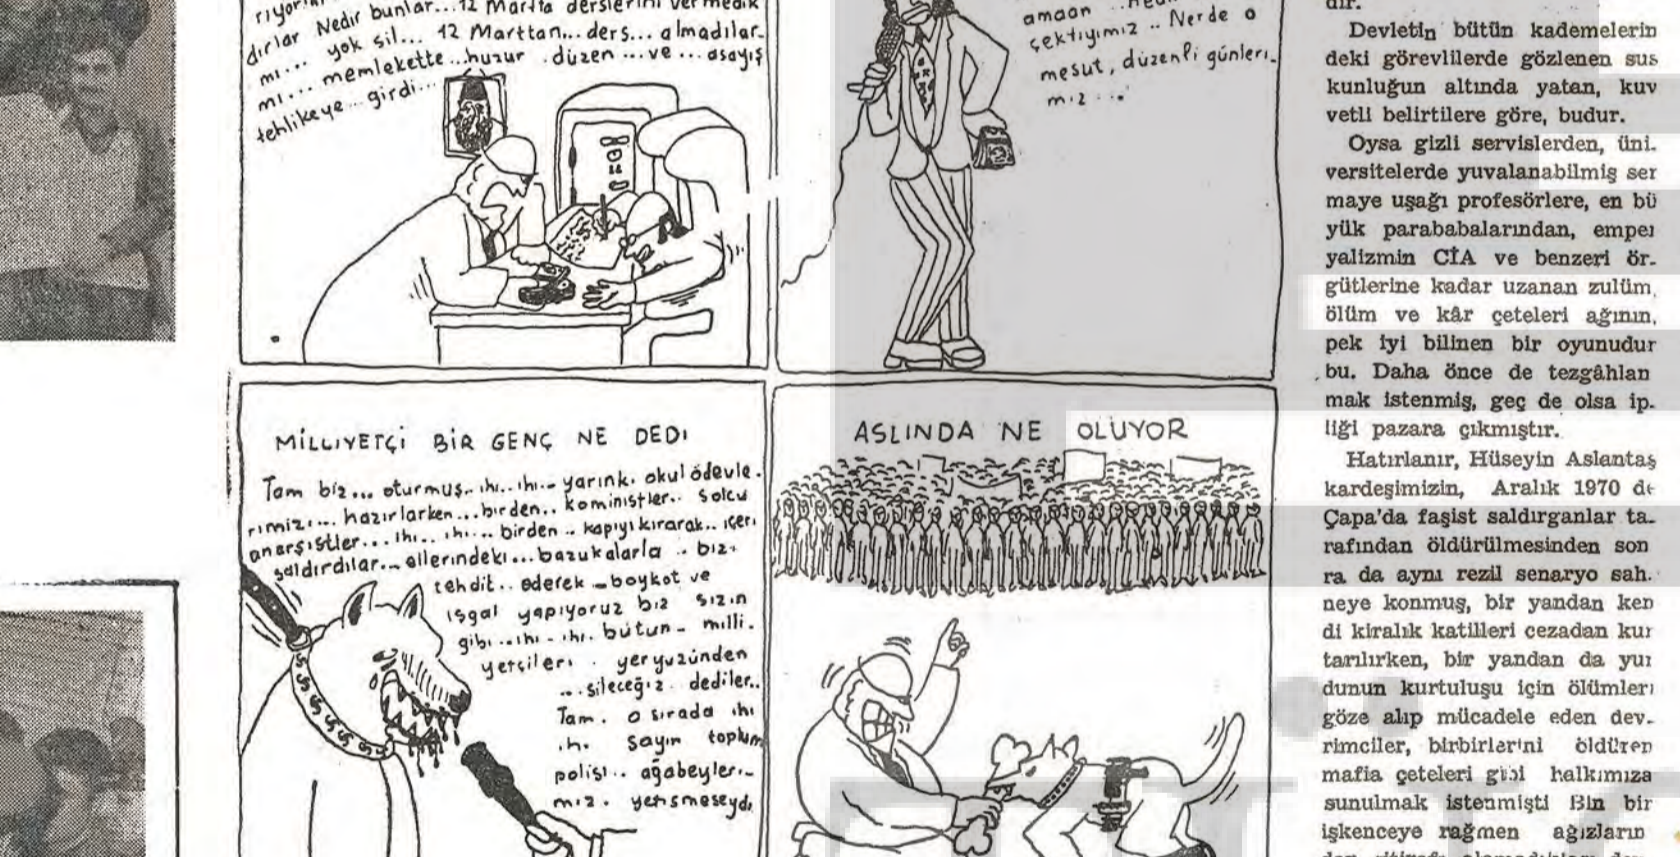 dırlar Nedir bunlar...12 Martta derslerini vermedik
mı... yok sil... 12 Marttan...ders...almadılar-
mı... memlekette...huzur .düzen...ve...asayış
tehlikeye...girdi...
amaan
çektiyimiz.. Nerde o
mesut, düzenli günleri-
miz...
MİLLİYETÇİ BİR GENÇ NE DEDİ
Tam biz... oturmuş..ıhı..ıhı-- yarınki okul ödevle-
rimizi... hazırlarken...birden.. kominıstler.. solcu
anarşistler...ıhı...ıhı... birden .. kapıyı kırarak..içeri
saldırdılar.._ellerindeki...bazukalarla .. bizi
tehdit.. ederek _boykot ve
işgal yapıyoruz biz sizin
gibi...ıhı-ıhı. bütün- milli-
yetçileri . yeryüzünden
...sileceğiz dediler..
Tam. o sırada ıhı
.ıh. sayın toplum
polisi.. ağabeyleri-
miz. yetişmeseydi
ASLINDA NE OLUYOR
dir.
Devletin bütün kademelerin
deki görevlilerde gözlenen sus
kunluğun altında yatan, kuv
vetli belirtilere göre, budur.
Oysa gizli servislerden, üni-
versitelerde yuvalanabilmiş ser
maye uşağı profesörlere, en bü
yük parababalarından, emper
yalizmin CİA ve benzeri ör-
gütlerine kadar uzanan zulüm,
ölüm ve kâr çeteleri ağının,
pek iyi bilinen bir oyunudur
bu. Daha önce de tezgâhlan
mak istenmiş, geç de olsa ip-
liği pazara çıkmıştır.
Hatırlanır, Hüseyin Aslantaş
kardeşimizin, Aralık 1970 de
Çapa'da faşist saldırganlar ta-
rafından öldürülmesinden son
ra da aynı rezil senaryo sah-
neye konmuş, bir yandan ken
di kiralık katilleri cezadan kur
tarılırken, bir yandan da yur
dunun kurtuluşu için ölümleri
göze alıp mücadele eden dev-
rimciler, birbirlerini öldüren
mafia çeteleri gibi halkımıza
sunulmak istenmişti Bin bir
işkenceye rağmen ağızların